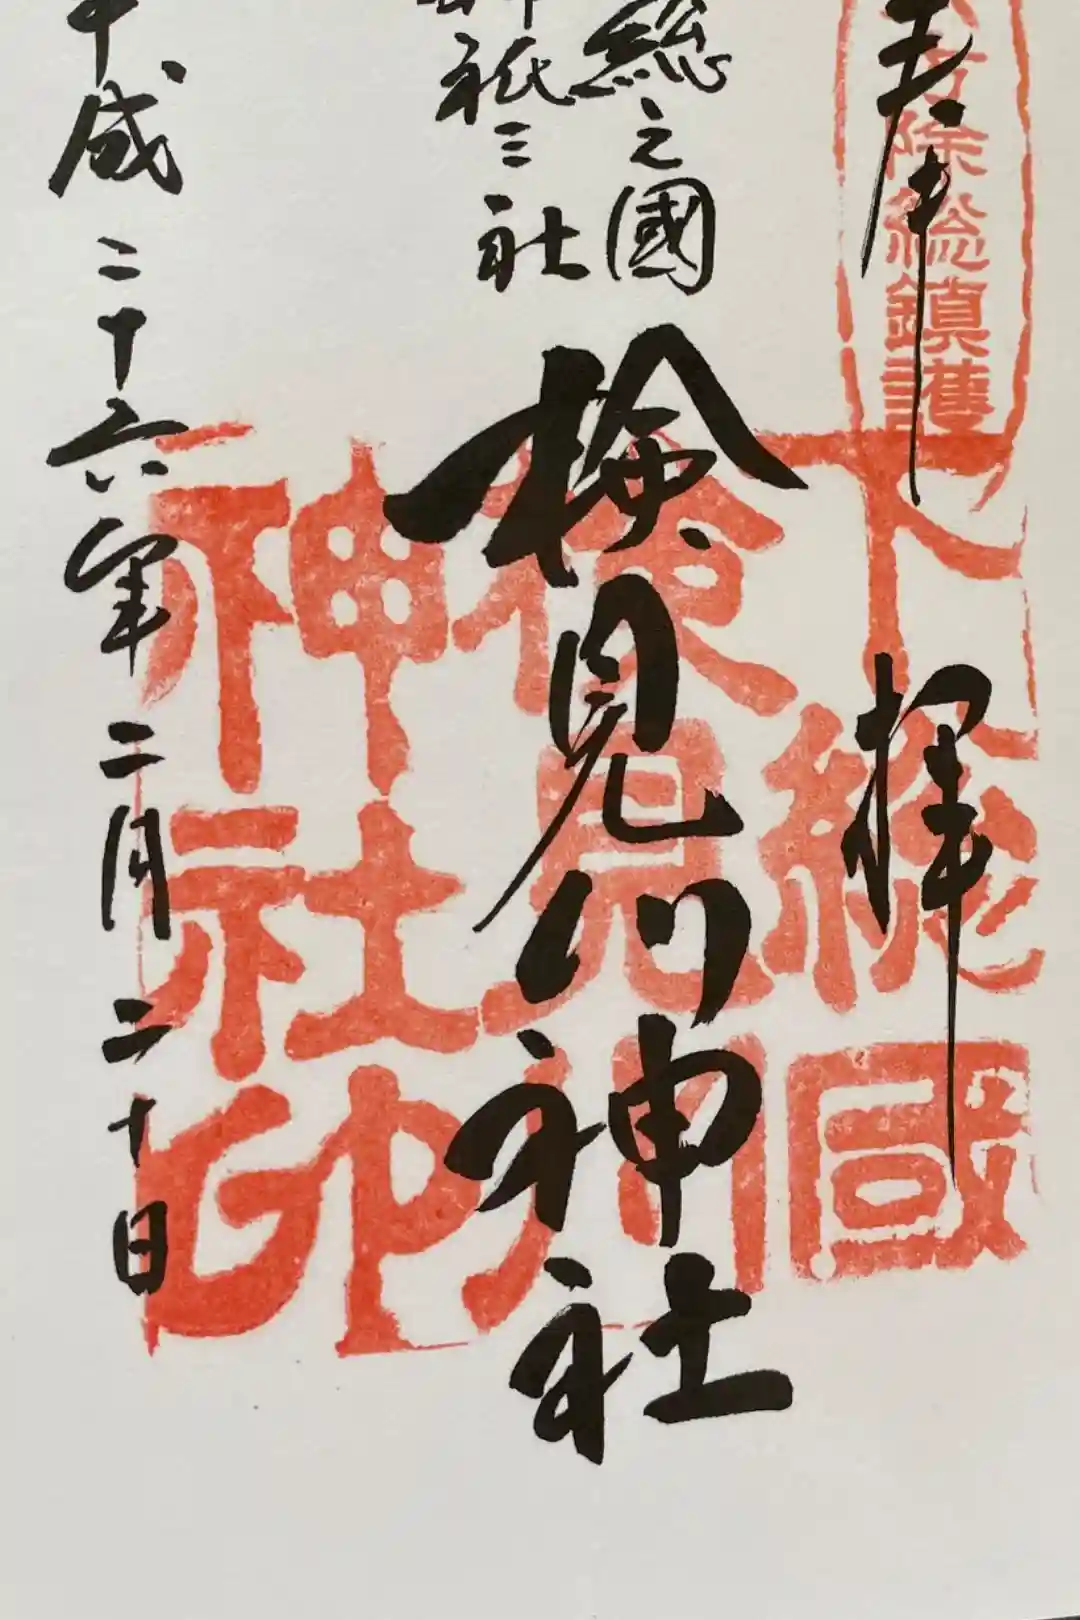 奉拝
方除総鎮護
総之國
神祇三社
検見川神社
平成二十六年二月二十日
下総國
検見川
神社印